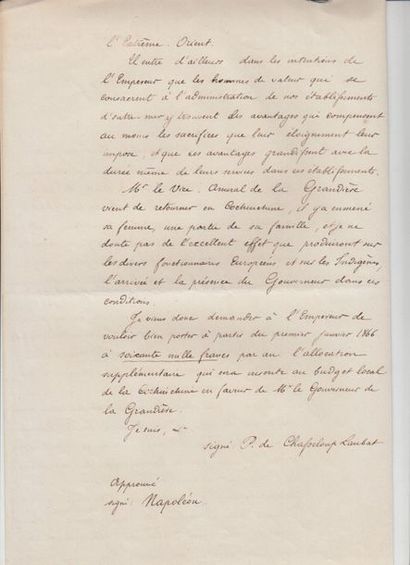 l'Extrême-Orient.
Il entre d'ailleurs dans les intentions de
l'Empereur que les hommes de valeur qui se
consacrent à l'administration de nos établissements
d'outre-mer y trouvent des avantages qui compensent
au moins les sacrifices que leur éloignement leur
impose, et que ces avantages grandissent avec la
durée même de leurs services dans ces établissements.
Mr le Vice-Amiral de la Grandière
vient de retourner en Cochinchine, il y a emmené
sa femme, une partie de sa famille, et je ne
doute pas de l'excellent effet que produiront sur
les divers fonctionnaires Européens et sur les Indigènes,
l'arrivée et la présence du Gouverneur dans ces
conditions.
Je viens donc demander à l'Empereur de
vouloir bien porter à partir du premier janvier 1866
à soixante mille francs par an l'allocation
supplémentaire qui sera inscrite au budget local
de la Cochinchine en faveur de Mr le Gouverneur de
la Grandière.
Je suis, &
signé: P. de Chasseloup Laubat
Approuvé
signé: Napoléon.